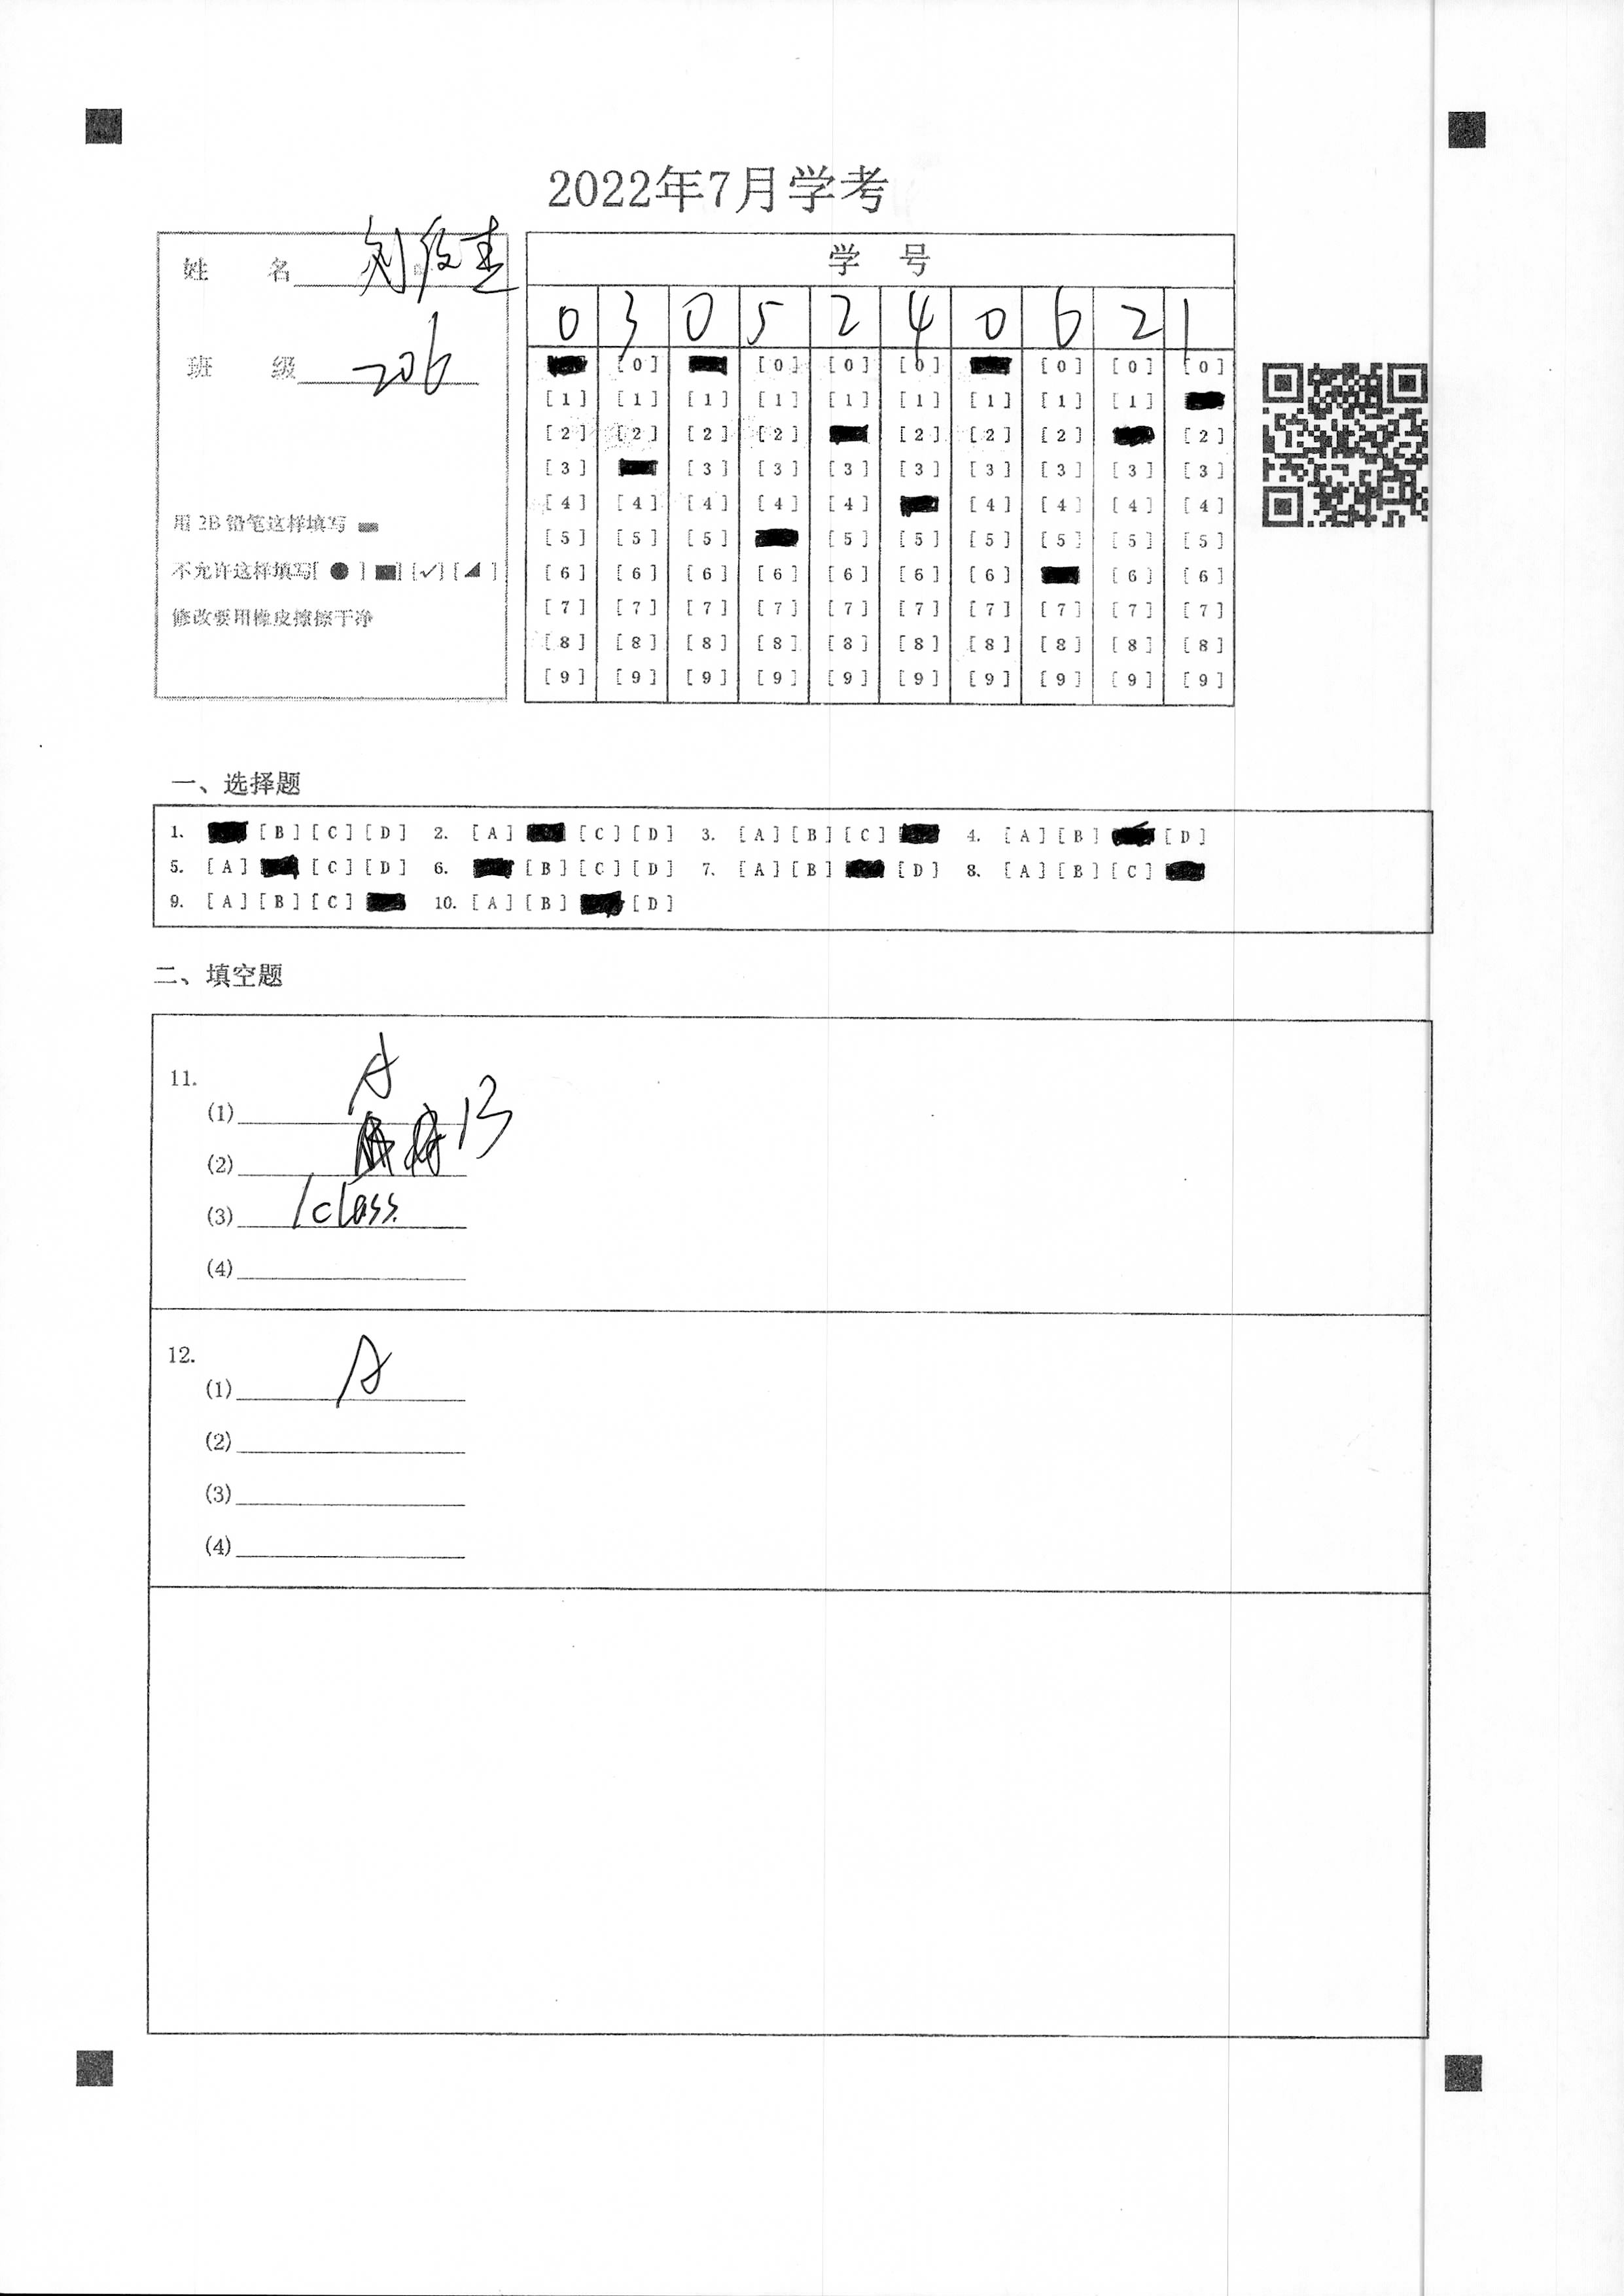 2022年7月学考
姓 名 刘俊杰
班 级 206
用 2B 铅笔这样填写
不允许这样填写[ ● ] [■] [✓] [◢ ]
修改要用橡皮擦擦干净
学 号
0 3 0 5 2 4 0 6 2 1
[0] [0] [0] [0] [0] [0] [0]
[1] [1] [1] [1] [1] [1] [1] [1] [1]
[2] [2] [2] [2] [2] [2] [2] [2]
[3] [3] [3] [3] [3] [3] [3] [3] [3]
[4] [4] [4] [4] [4] [4] [4] [4] [4]
[5] [5] [5] [5] [5] [5] [5] [5] [5]
[6] [6] [6] [6] [6] [6] [6] [6] [6]
[7] [7] [7] [7] [7] [7] [7] [7] [7] [7]
[8] [8] [8] [8] [8] [8] [8] [8] [8] [8]
[9] [9] [9] [9] [9] [9] [9] [9] [9] [9]
一、选择题
1. [B] [C] [D] 2. [A] [C] [D] 3. [A] [B] [C] 4. [A] [B] [D]
5. [A] [C] [D] 6. [B] [C] [D] 7. [A] [B] [D] 8. [A] [B] [C]
9. [A] [B] [C] 10. [A] [B] [D]
二、填空题
11.
(1) A
(2) B
(3) 1class
(4)
12.
(1) A
(2)
(3)
(4)